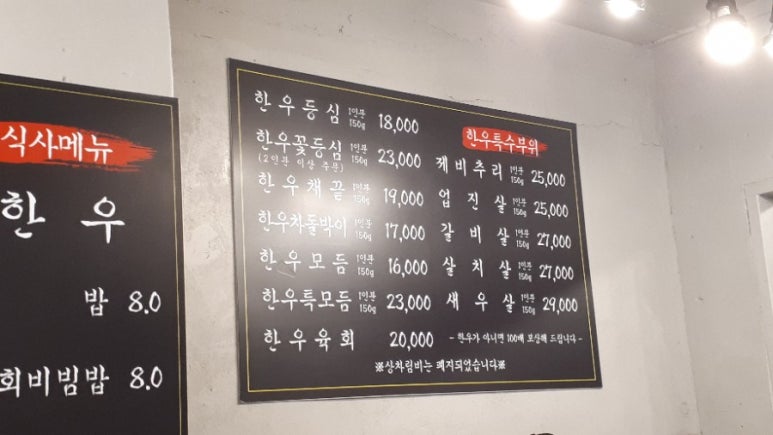 식사메뉴
한 우
밥 8.0
회비빔밥 8.0
한우등심 1인분 150g 18,000
한우꽃등심 1인분 150g 23,000
(2인분 이상 주문)
한우채끝 1인분 150g 19,000
한우차돌박이 1인분 150g 17,000
한우모듬 1인분 150g 16,000
한우특모듬 1인분 150g 23,000
한우육회 20,000
한우특수부위
제비추리 1인분 150g 25,000
업진살 1인분 150g 25,000
갈비살 1인분 150g 27,000
살치살 1인분 150g 27,000
새우살 1인분 150g 29,000
- 한우가 아니면 100배 보상해 드립니다 -
※상차림비는 폐지되었습니다※